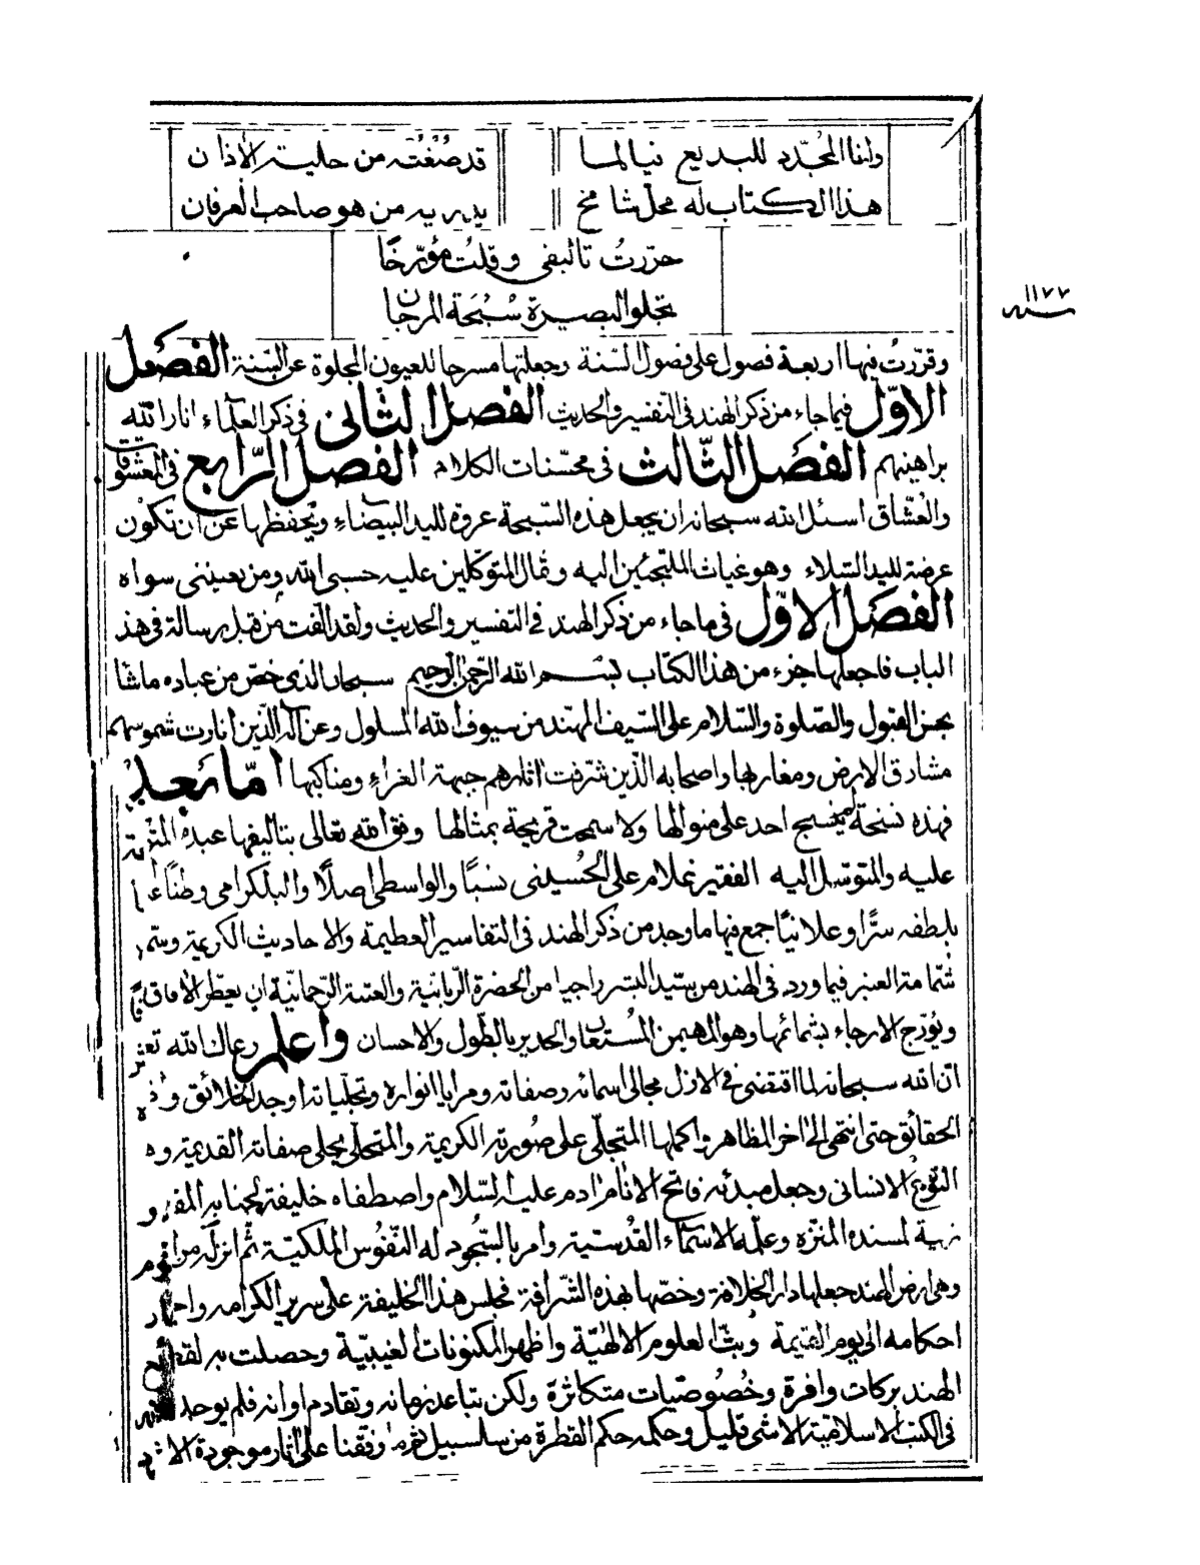 وانا المجدد للبديع نيالما قد صُغْتُه من حلية الاذان
هذا الكتاب له محلّ شامخ يدريه من هو صاحب العرفان
حرّرتُ تاليفى وقلتُ مؤرّخًا
تجلو البصيرة سُبْحَة المرجان
سنه ۱۱۷۷
وقرّرتُ فيها اربعة فصول على فصول السنة وجعلتها مسرحا للعيون المجلوة عن السّنة الفصل
الاوّل فيما جاء من ذكر الهند فى التفسير والحديث الفصل الثّانى فى ذكر العلماء انار الله
براهينهم الفصل الثّالث فى محسّنات الكلام الفصل الرّابع فى المعشوقات
والعُشّاق اسئل الله سبحانه ان يجعل هذه السّبحة عروة لليد البيضاء ويحفظها عن ان تكون
عرضة لليد الشلاء وهو غياث الملتجئين اليه وثمال المتوكلين عليه حسبى الله ومن يعيننى سواه
الفصل الاوّل فى ما جاء من ذكر الهند فى التفسير والحديث ولقد الّفت من قبل رسالة فى هذ
الباب فاجعلها جزء من هذا الكتاب بسم الله الرّحمن الرّحيم سبحان الذى خصّ من عباده ماشا
بحسن القبول والصّلوة والسّلام على السّيف المهنّد من سيوف الله المسلول وعن اله الّذين انارت شموسهم
مشارق الارض ومغاربها واصحابه الّذين شرفت اثارهم جبهة الغراء ومناكبها امّا بعد
فهذه نسخة لم ينسج احد على منوالها ولا سمحت قريحة بمثالها وفق الله تعالى بتاليفها عبده
عليه والمتوسّل اليه الفقير غلام على الحُسينى نسبًا والواسطى اصلًا والبلكرامى وطنًا
بلطفه سرًّا وعلانيًا جمع فيها ما وجد من ذكر الهند فى التفاسير العظيمة والاحاديث الكريمة
شمّامة العنبر فيما ورد فى الهند من سيّد البشر راجيا من الحضرة الرّبانيّة والعتبة الرّحمانيّة ان يعطّر الافاق
ويُؤرّج الارجاء بشمائمها وهو المهيمن المُستعان والجدير بالطّول والاحسان واعلم رعاك الله تعـ
انّ الله سبحانه لما اقتضى فى الازل مجالى اسمائه وصفاته ومرايا انواره وتجلّياته اوجد الخلائق
الحقائق حتى انتهى الى اخر المظاهر واكملها المتجلّى على صورته الكريمة والمتحلّى بحلى صفاته القديمة
النّوع الانسانى وجعل مبدئه فاتح الانام ادم عليه السّلام واصطفاه خليفة لجنابه
لمسنده المنزه وعلّمه الاسماء القدسيّة وامر بالسّجود له النّفوس الملكيّة ثم انزله من
وهى ارض الهند جعلها دار الخلافة وخصّها بهذه الشّرافة فجلس هذا الخليفة على سرير الكرامه
احكامه الى يوم القيمة وبثّ العلوم الالهيّة واظهر المكنونات الغيبيّة وحصلت به
الهند بركات وافرة وخُصُوصيّات متكاثرة ولكن بتباعد زمانه وتقادم اوانه فلم يوجد
فى الكتب الاسلاميّة الا شى قليل وحكمه حكم القطرة من سلسبيل ثم ما وقفنا على اثار موجودة